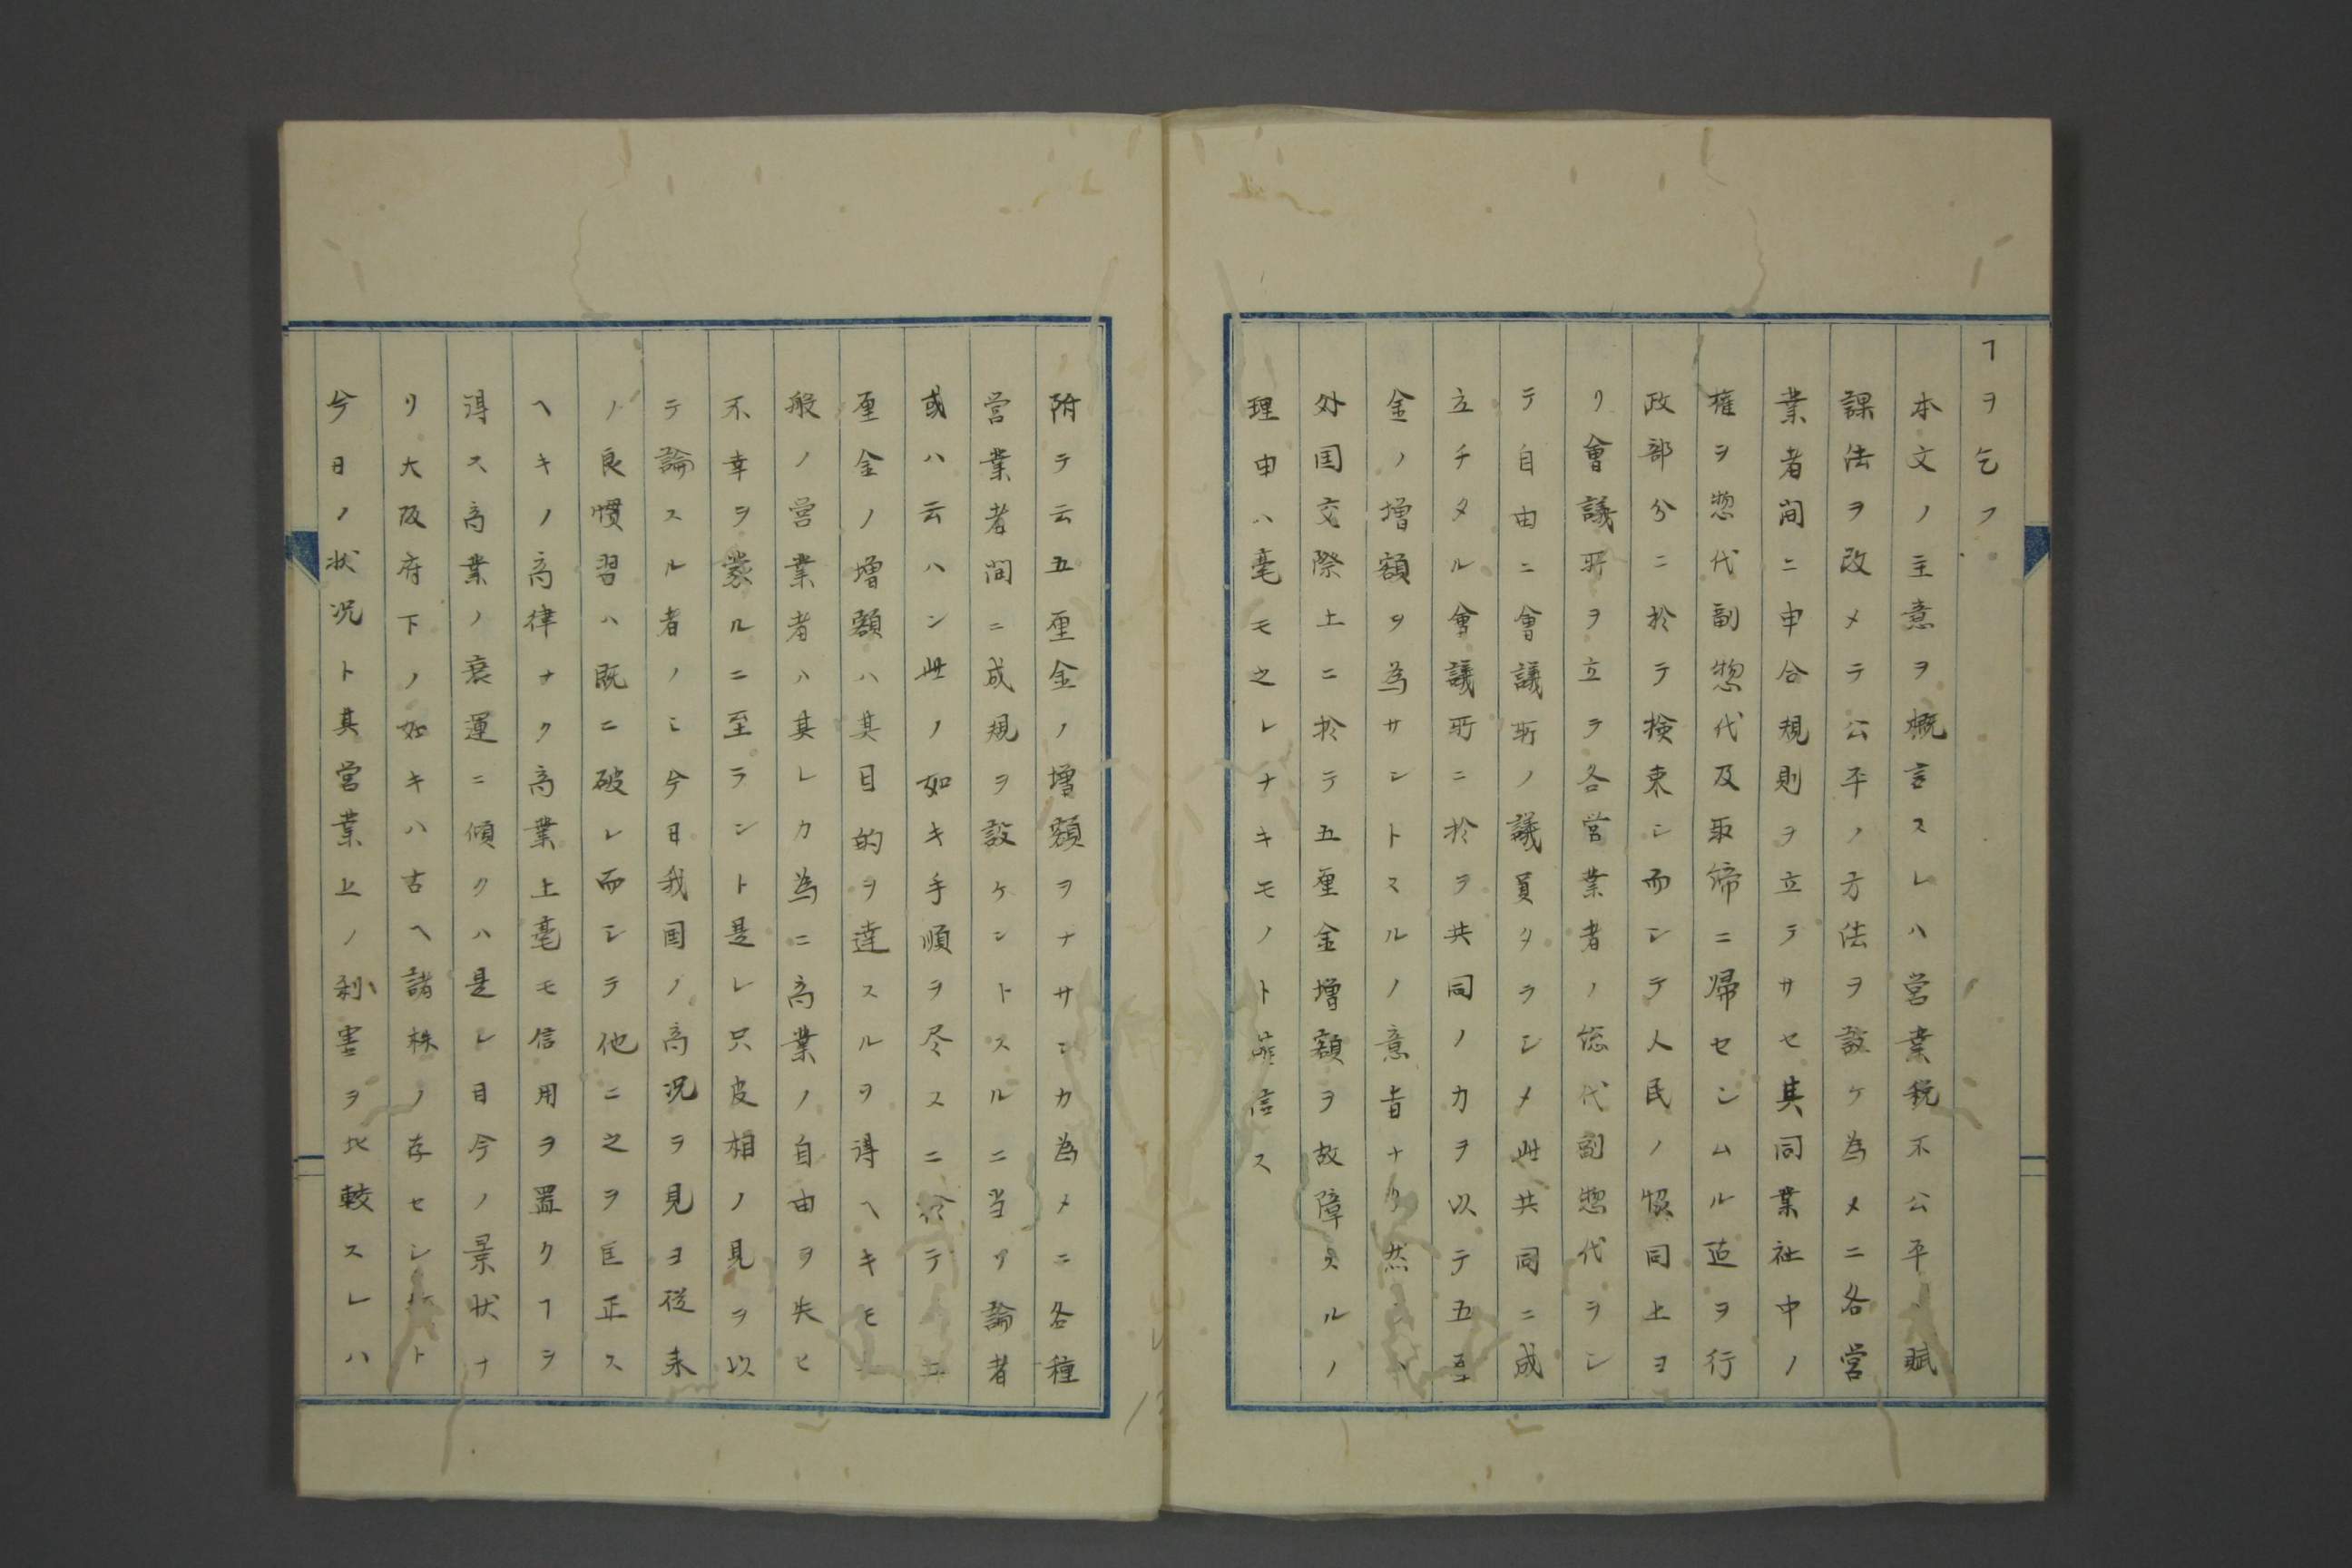 ヿヲ乞フ
本文ノ主意ヲ概言スレハ営業税不公平ノ賦
課法ヲ改メテ公平ノ方法ヲ設ケ為メニ各営
業者間ニ申合規則ヲ立テサセ其同業社中ノ
権ヲ惣代副惣代及取締ニ帰セシムル迠ヲ行
政部分ニ於テ検束シ而シテ人民ノ協同上ヨ
リ會議所ヲ立テ各営業者ノ惣代副惣代ヲシ
テ自由ニ會議所ノ議員タラシメ此共同ニ成
立チタル會議所ニ於テ共同ノ力ヲ以テ五厘
金ノ増額ヲ為サントスルノ意旨ナリ然ラハ
外国交際上ニ於テ五厘金増額ヲ故障スルノ
理由ハ毫モ之レナキモノト確信ス
附テ云五厘金ノ増額ヲナサンカ為メニ各種
営業者間ニ成規ヲ設ケントスルニ当リ論者
或ハ云ハン此ノ如キ手順ヲ尽スニ於テハ五
厘金ノ増額ハ其目的ヲ達スルヲ得ヘキモ一
般ノ営業者ハ其レカ為ニ商業ノ自由ヲ失ヒ
不幸ヲ蒙ルニ至ラント是レ只皮相ノ見ヲ以
テ論スル者ノミ今日我国ノ商況ヲ見ヨ従来
ノ良慣習ハ既ニ破レ而シテ他ニ之ヲ匡正ス
ヘキノ商律ナク商業上毫モ信用ヲ置クヿヲ
得ス商業ノ衰運ニ傾クハ是レ目今ノ景状ナ
リ大阪府下ノ如キハ古ヘ諸株ノ存セシ時ト
今日ノ状況ト其営業上ノ利害ヲ比較スレハ